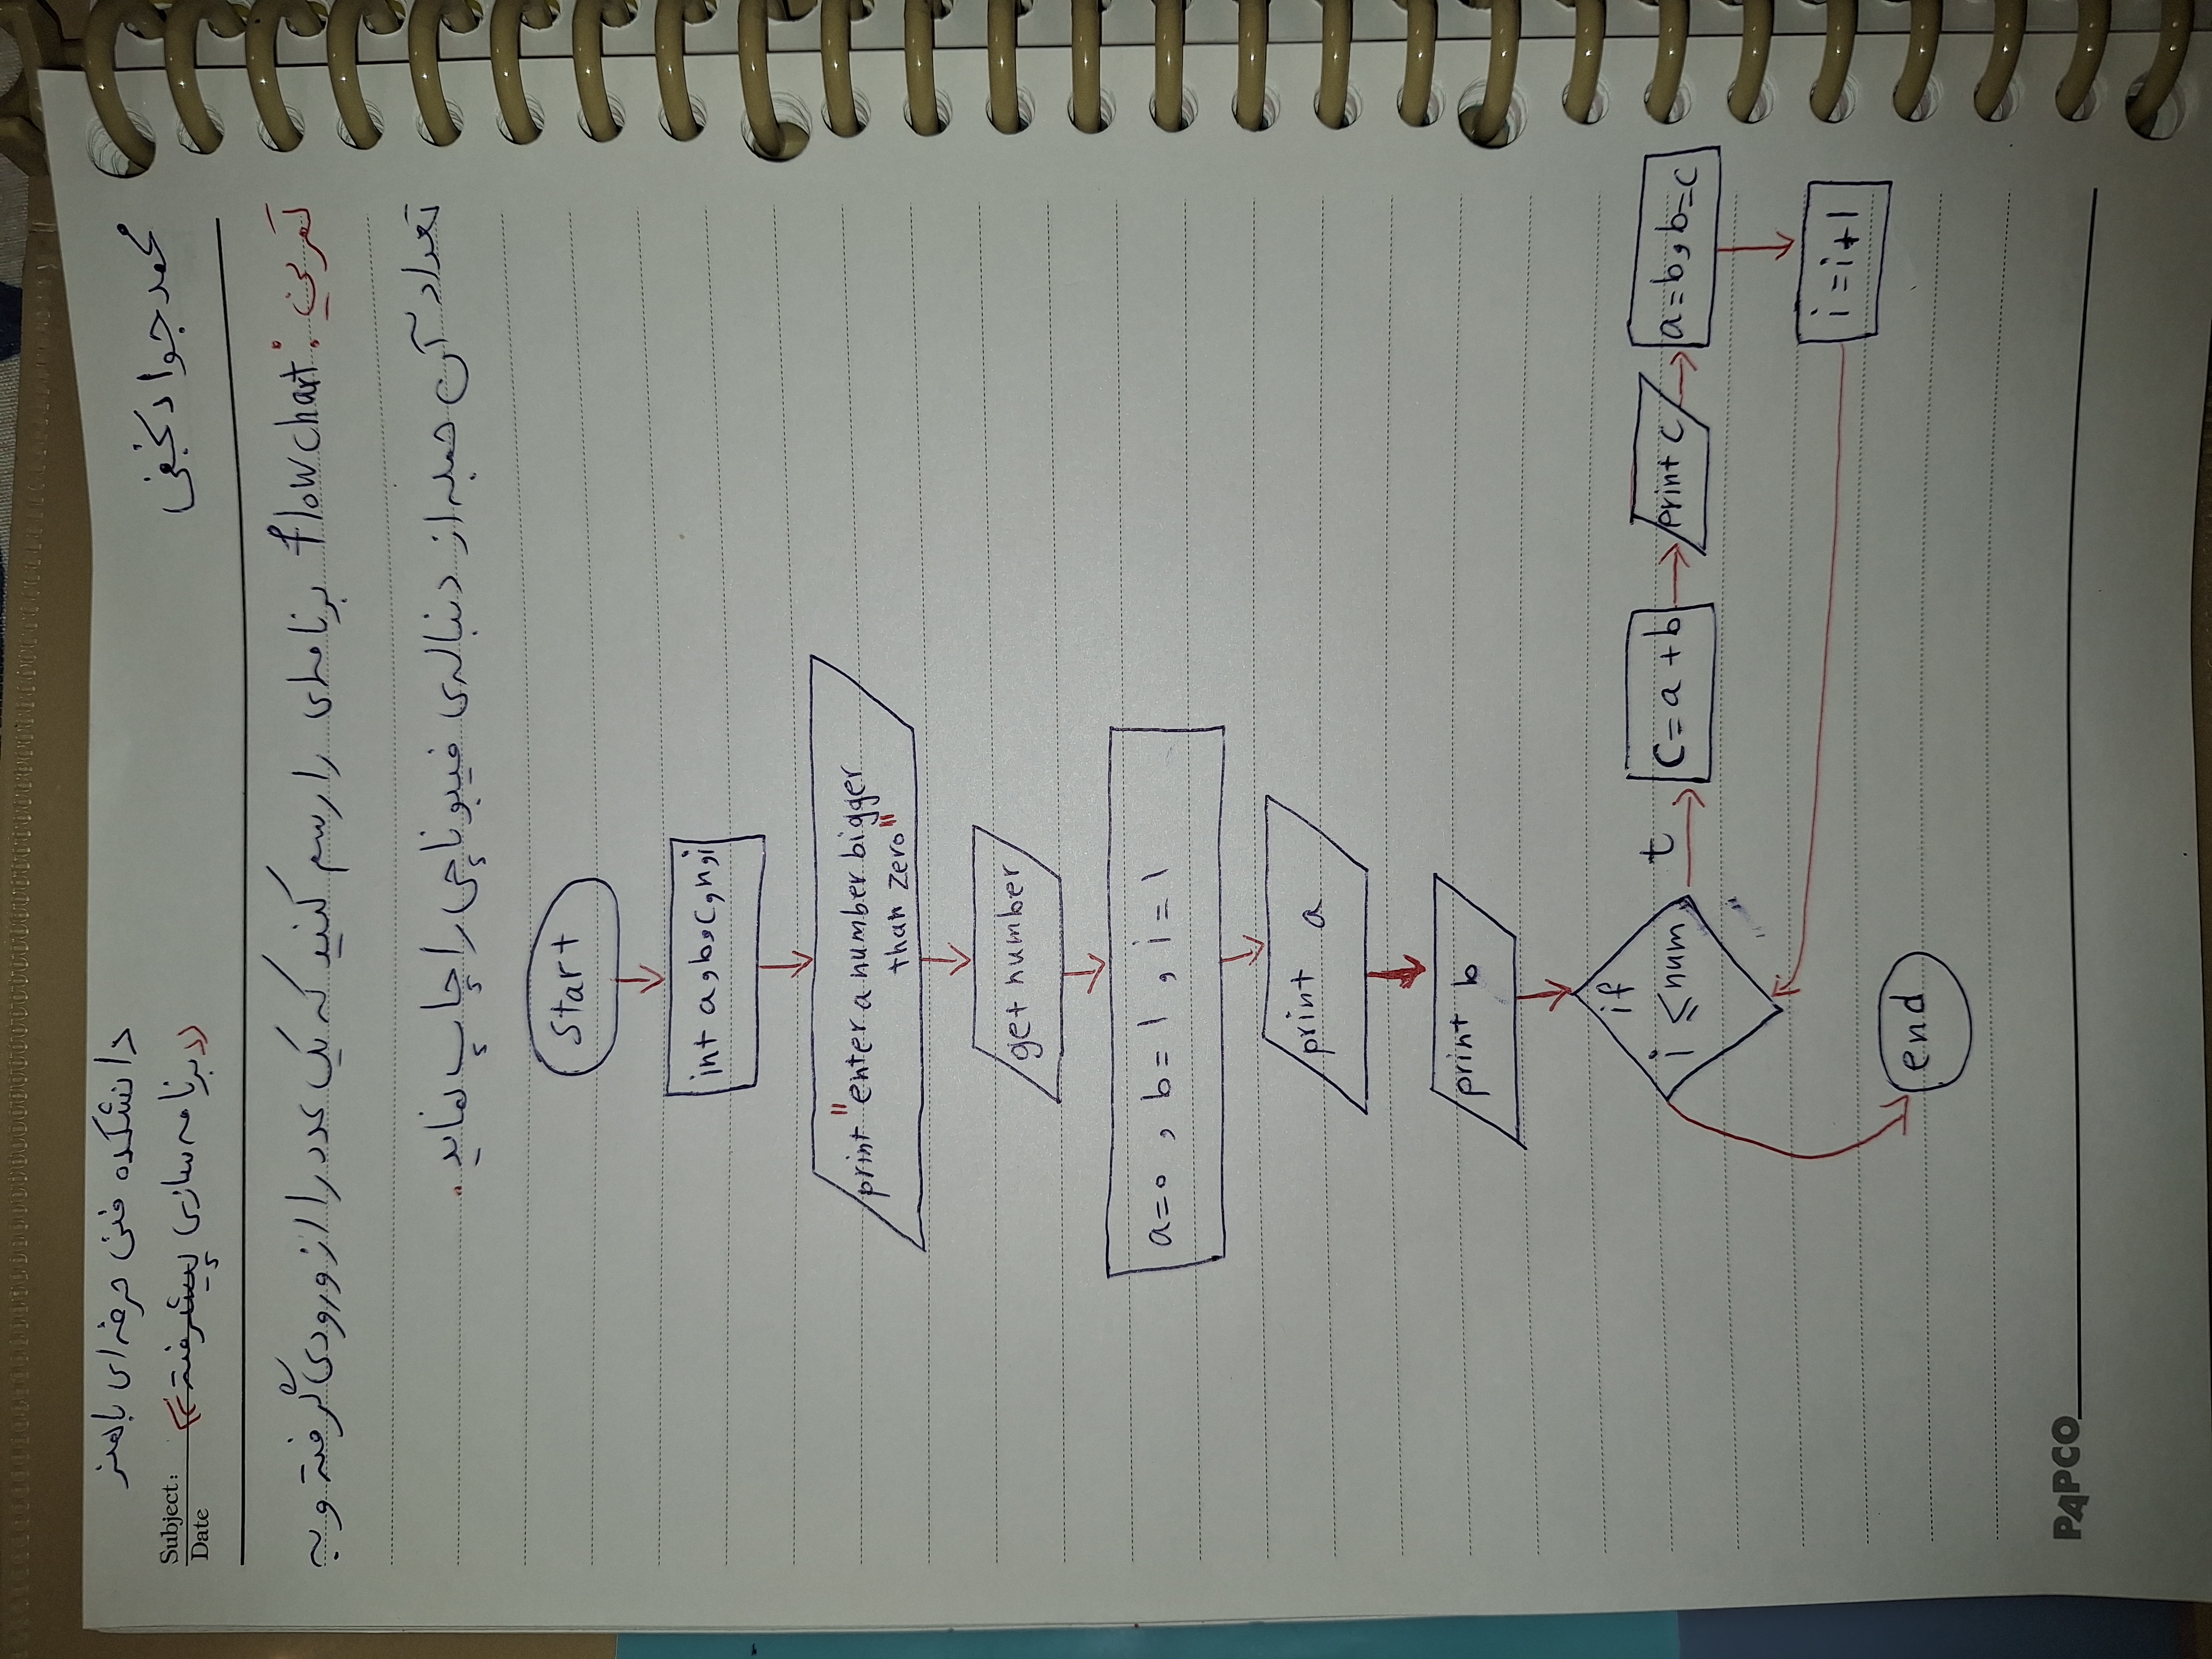 دانشکده فنی حرفه‌ای باهنر
محمدجواد نجفی
Subject:
Date
«برنامه سازی پیشرفته»
تمرین: flowchart برنامه‌ای را رسم کنید که یک عدد را از ورودی گرفته و به
تعداد آن جمله از دنباله‌ی فیبوناچی را چاپ نماید.
start
int a,b,c,n,i
print "enter a number bigger
than zero"
get number
a=0 , b=1 , i=1
print a
print b
if
i ≤num
t
c=a+b
print c
a=b,b=c
i=i+1
end
PAPCO